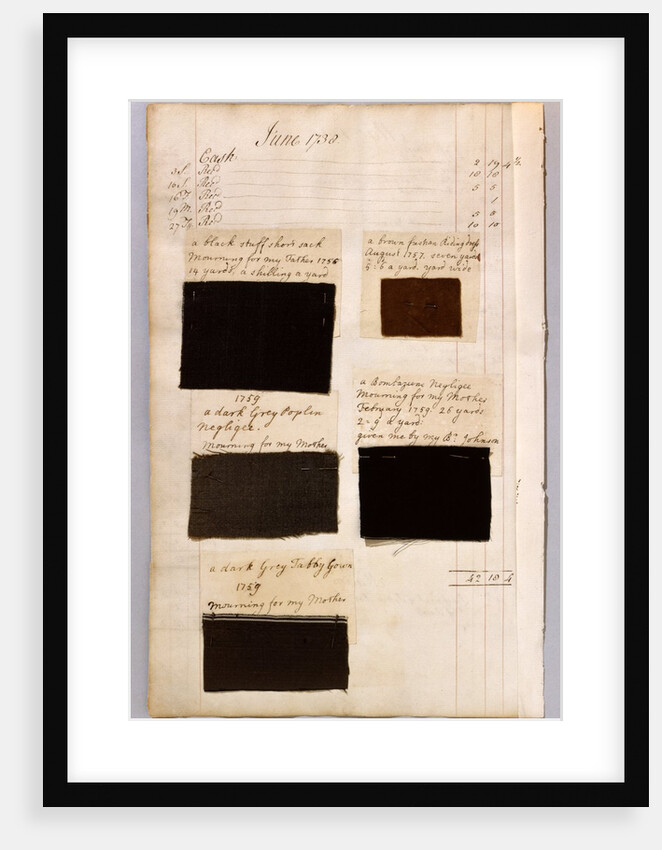 June 1738
Cash
2 19 4½
3 S. Recd 10 10
10 S. Recd 5 5
16 F. Recd 1
19 M. Recd 5
27 Recd 10 10
a black stuff short sack
Mourning for my Father 1756
14 yards. a shilling a yard
a brown fustian Riding dress
August 1757. seven yards
5:6 a yard. yard wide
1759
a dark Grey Poplin
Negligee.
Mourning for my Mother
a Bombazeen Negligee
Mourning for my Mother
February 1759. 26 yards
2=9 a yard:
given me by my Br. Johnson
a dark Grey Tabby Gown
1759
Mourning for my Mother
42 18 4